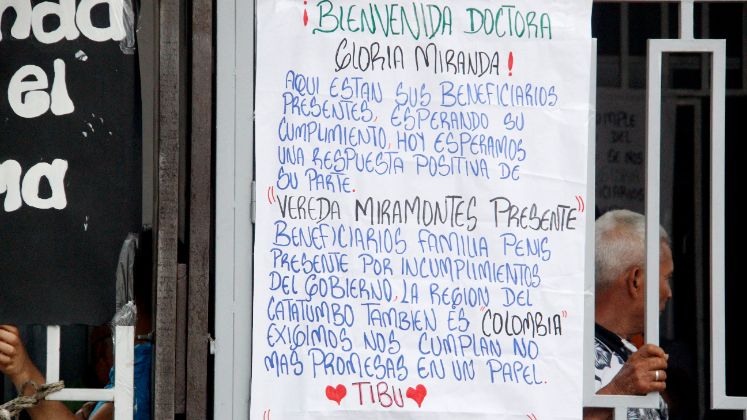 nda
el
ma
¡BIENVENIDA DOCTORA
GLORIA MIRANDA!
AQUI ESTAN SUS BENEFICIARIOS
PRESENTES, ESPERANDO SU
CUMPLIMIENTO, HOY ESPERAMOS
UNA RESPUESTA POSITIVA DE
SU PARTE.
"VEREDA MIRAMONTES PRESENTE"
BENEFICIARIOS FAMILIA PENIS
PRESENTE POR INCUMPLIMIENTOS
DEL GOBIERNO, LA REGION DEL
CATATUMBO TAMBIEN ES "COLOMBIA"
EXIGIMOS NOS CUMPLAN NO
MAS PROMESAS EN UN PAPEL.
♥ TIBU ♥